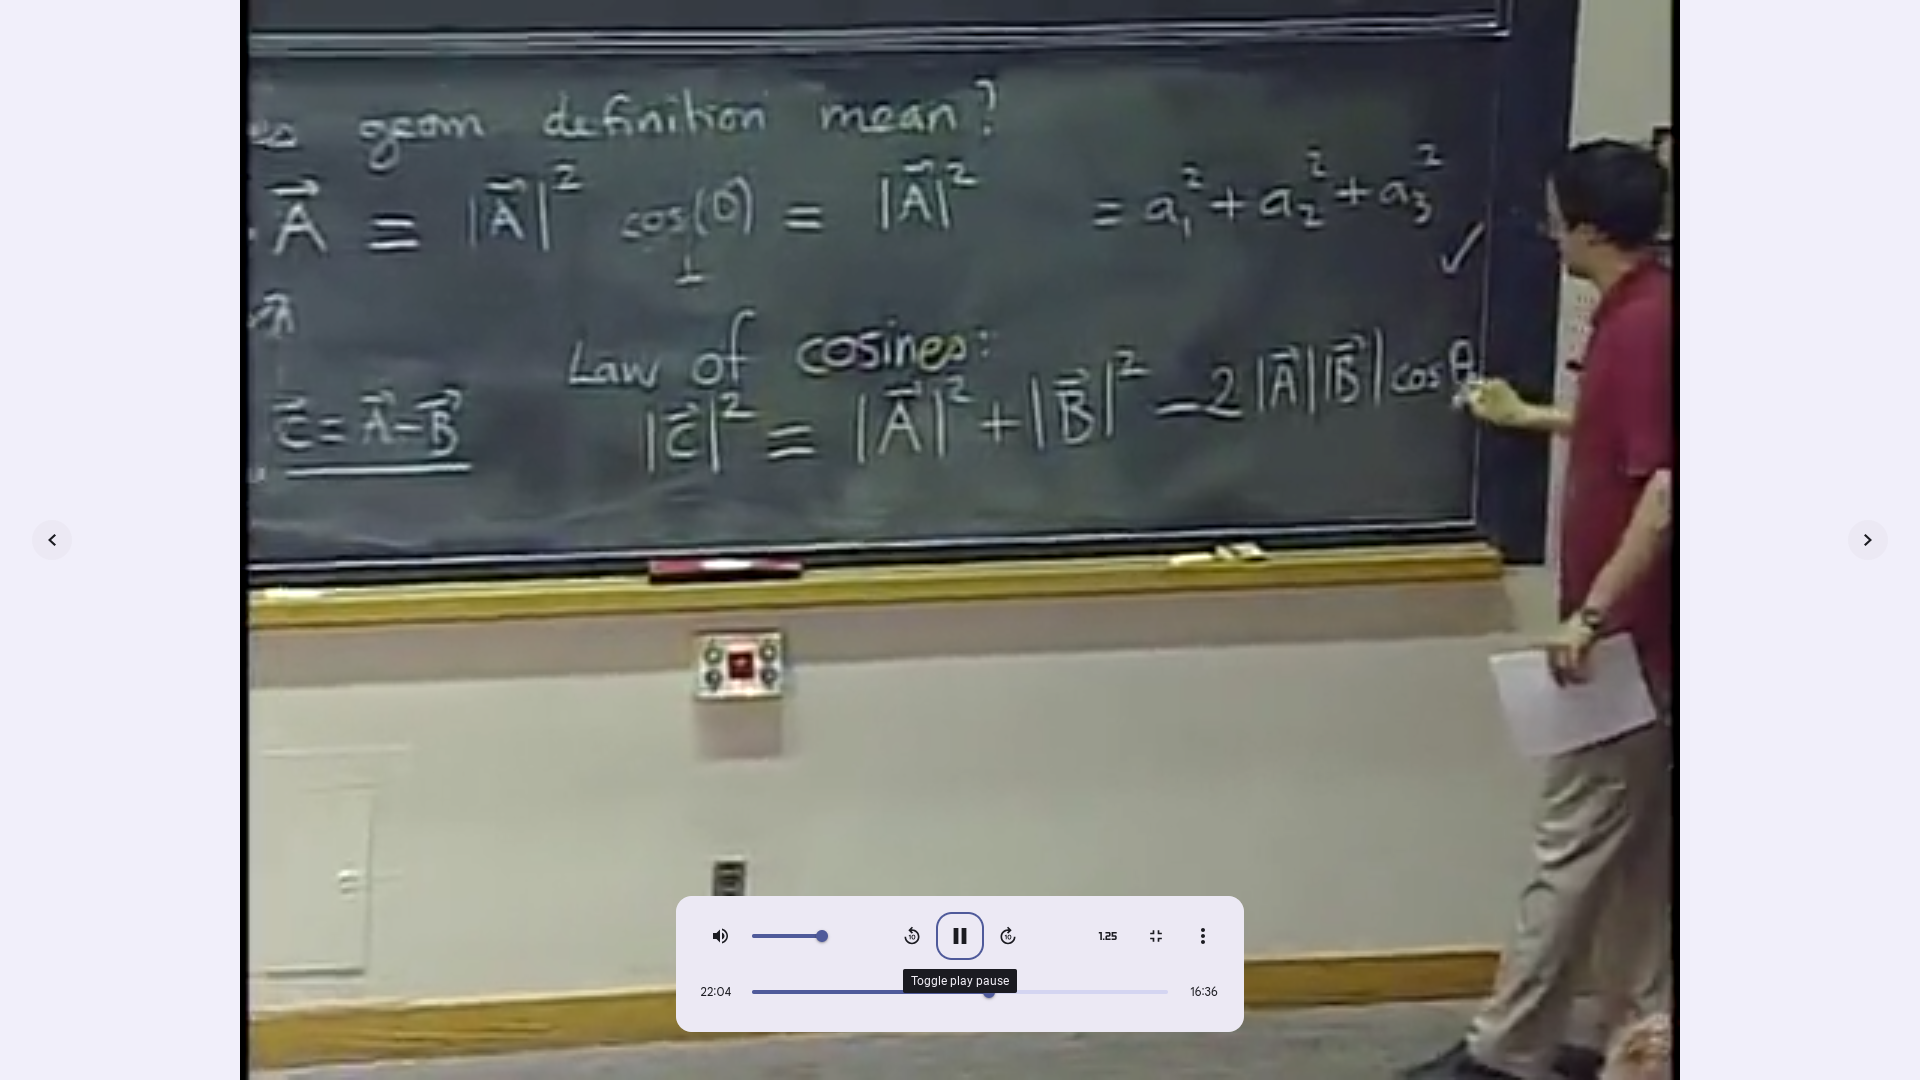 geom definition mean?
A⃗ = |A⃗|² cos(0) = |A⃗|² = a₁² + a₂² + a₃² ✓
1
Law of cosines:
C⃗ = A⃗ - B⃗
|C⃗|² = |A⃗|² + |B⃗|² - 2|A⃗||B⃗| cos θ
1.25
Toggle play pause
22:04
16:36